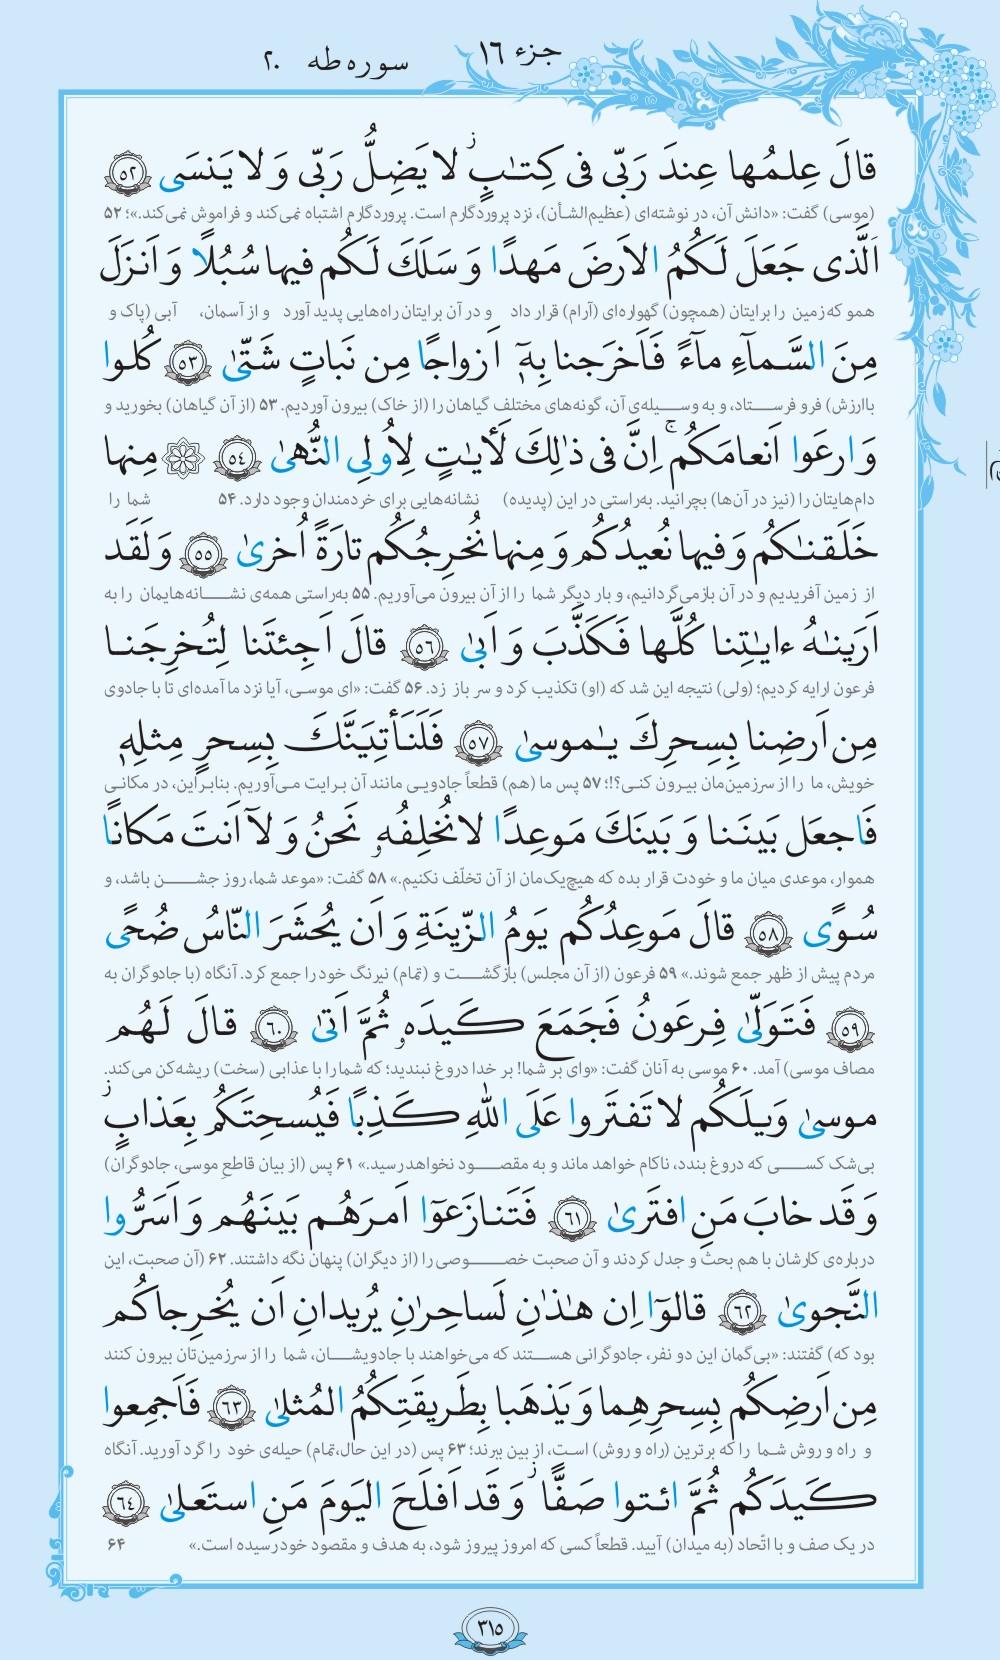 جزء ١٦
سوره طه ٢٠
قالَ عِلمُها عِندَ رَبّی فی کِتٰبٍ ز لا یَضِلُّ رَبّی وَ لا یَنسَی ٥٢
(موسی) گفت: «دانش آن، در نوشته‌ای (عظیم‌الشأن)، نزد پروردگارم است. پروردگارم اشتباه نمی‌کند و فراموش نمی‌کند.»؛ ۵۲
اَلَّذی جَعَلَ لَکُمُ الاَرضَ مَهدًا وَ سَلَکَ لَکُم فیها سُبُلًا وَ اَنزَلَ
همو که زمین را برایتان (همچون) گهواره‌ای (آرام) قرار داد و در آن برایتان راه‌هایی پدید آورد و از آسمان، آبی (پاک و
مِنَ السَّمآءِ مآءً فَاَخرَجنا بِهٖٓ اَزواجًا مِن نَباتٍ شَتّیٰ ٥٣ کُلوا
باارزش) فرو فرستاد، و به وسیله‌ی آن، گونه‌های مختلف گیاهان را (از خاک) بیرون آوردیم. ۵۳ (از آن گیاهان) بخورید و
وَ ارعَوا اَنعامَکُم ج اِنَّ فی ذٰلِکَ لَأٓیٰتٍ لِاُولِی النُّهیٰ ٥٤ مِنها
دام‌هایتان را (نیز در آن‌ها) بچرانید. به‌راستی در این (پدیده) نشانه‌هایی برای خردمندان وجود دارد. ۵۴ شما را
خَلَقنٰکُم وَ فیها نُعیدُکُم وَ مِنها نُخرِجُکُم تارَةً اُخریٰ ٥٥ وَ لَقَد
از زمین آفریدیم و در آن بازمی‌گردانیم، و بار دیگر شما را از آن بیرون می‌آوریم. ۵۵ به‌راستی همه‌ی نشانه‌هایمان را به
اَرَینٰهُ ءایٰتِنا کُلَّها فَکَذَّبَ وَ اَبیٰ ٥٦ قالَ اَجِئتَنا لِتُخرِجَنا
فرعون ارایه کردیم؛ (ولی) نتیجه این شد که (او) تکذیب کرد و سر باز زد. ۵۶ گفت: «ای موسی، آیا نزد ما آمده‌ای تا با جادوی
مِن اَرضِنا بِسِحرِکَ یٰموسیٰ ٥٧ فَلَنَأتِیَنَّکَ بِسِحرٍ مِثلِهٖ
خویش، ما را از سرزمین‌مان بیرون کنی؟!؛ ۵۷ پس ما (هم) قطعاً جادویی مانند آن برایت می‌آوریم. بنابراین، در مکانی
فَاجعَل بَینَنا وَ بَینَکَ مَوعِدًا لا نُخلِفُهٗ نَحنُ وَ لآ اَنتَ مَکانًا
هموار، موعدی میان ما و خودت قرار بده که هیچ‌یک‌مان از آن تخلّف نکنیم.» ۵۸ گفت: «موعد شما، روز جشن باشد، و
سُوًی ٥٨ قالَ مَوعِدُکُم یَومُ الزّینَةِ وَ اَن یُحشَرَ النّاسُ ضُحًی
مردم پیش از ظهر جمع شوند.» ۵۹ فرعون (از آن مجلس) بازگشت و (تمام) نیرنگ خود را جمع کرد. آنگاه (با جادوگران به
٥٩ فَتَوَلّیٰ فِرعَونُ فَجَمَعَ کَیدَهٗ ثُمَّ اَتیٰ ٦٠ قالَ لَهُم
مصاف موسی) آمد. ۶۰ موسی به آنان گفت: «وای بر شما! بر خدا دروغ نبندید؛ که شما را با عذابی (سخت) ریشه‌کن می‌کند.
موسیٰ وَیلَکُم لا تَفتَروا عَلَی اللهِ کَذِبًا فَیُسحِتَکُم بِعَذابٍ ز
بی‌شک کسی که دروغ بندد، ناکام خواهد ماند و به مقصود نخواهد رسید.» ۶۱ پس (از بیان قاطع موسی، جادوگران)
وَ قَد خابَ مَنِ افتَریٰ ٦١ فَتَنازَعوٓا اَمرَهُم بَینَهُم وَ اَسَرُّوا
درباره‌ی کارشان با هم بحث و جدل کردند و آن صحبت خصوصی را (از دیگران) پنهان نگه داشتند. ۶۲ (آن صحبت، این
النَّجویٰ ٦٢ قالوٓا اِن هٰذٰنِ لَساحِرٰنِ یُریدانِ اَن یُخرِجاکُم
بود که) گفتند: «بی‌گمان این دو نفر، جادوگرانی هستند که می‌خواهند با جادویشان، شما را از سرزمین‌تان بیرون کنند
مِن اَرضِکُم بِسِحرِهِما وَ یَذهَبا بِطَریقَتِکُمُ المُثلیٰ ٦٣ فَاَجمِعوا
و راه و روش شما را که برترین (راه و روش) است، از بین ببرند؛ ۶۳ پس (در این حال، تمام) حیله‌ی خود را گرد آورید. آنگاه
کَیدَکُم ثُمَّ ائتوا صَفًّا ز وَ قَد اَفلَحَ الیَومَ مَنِ استَعلیٰ ٦٤
در یک صف و با اتّحاد (به میدان) آیید. قطعاً کسی که امروز پیروز شود، به هدف و مقصود خود رسیده است.» ۶۴
٣١٥